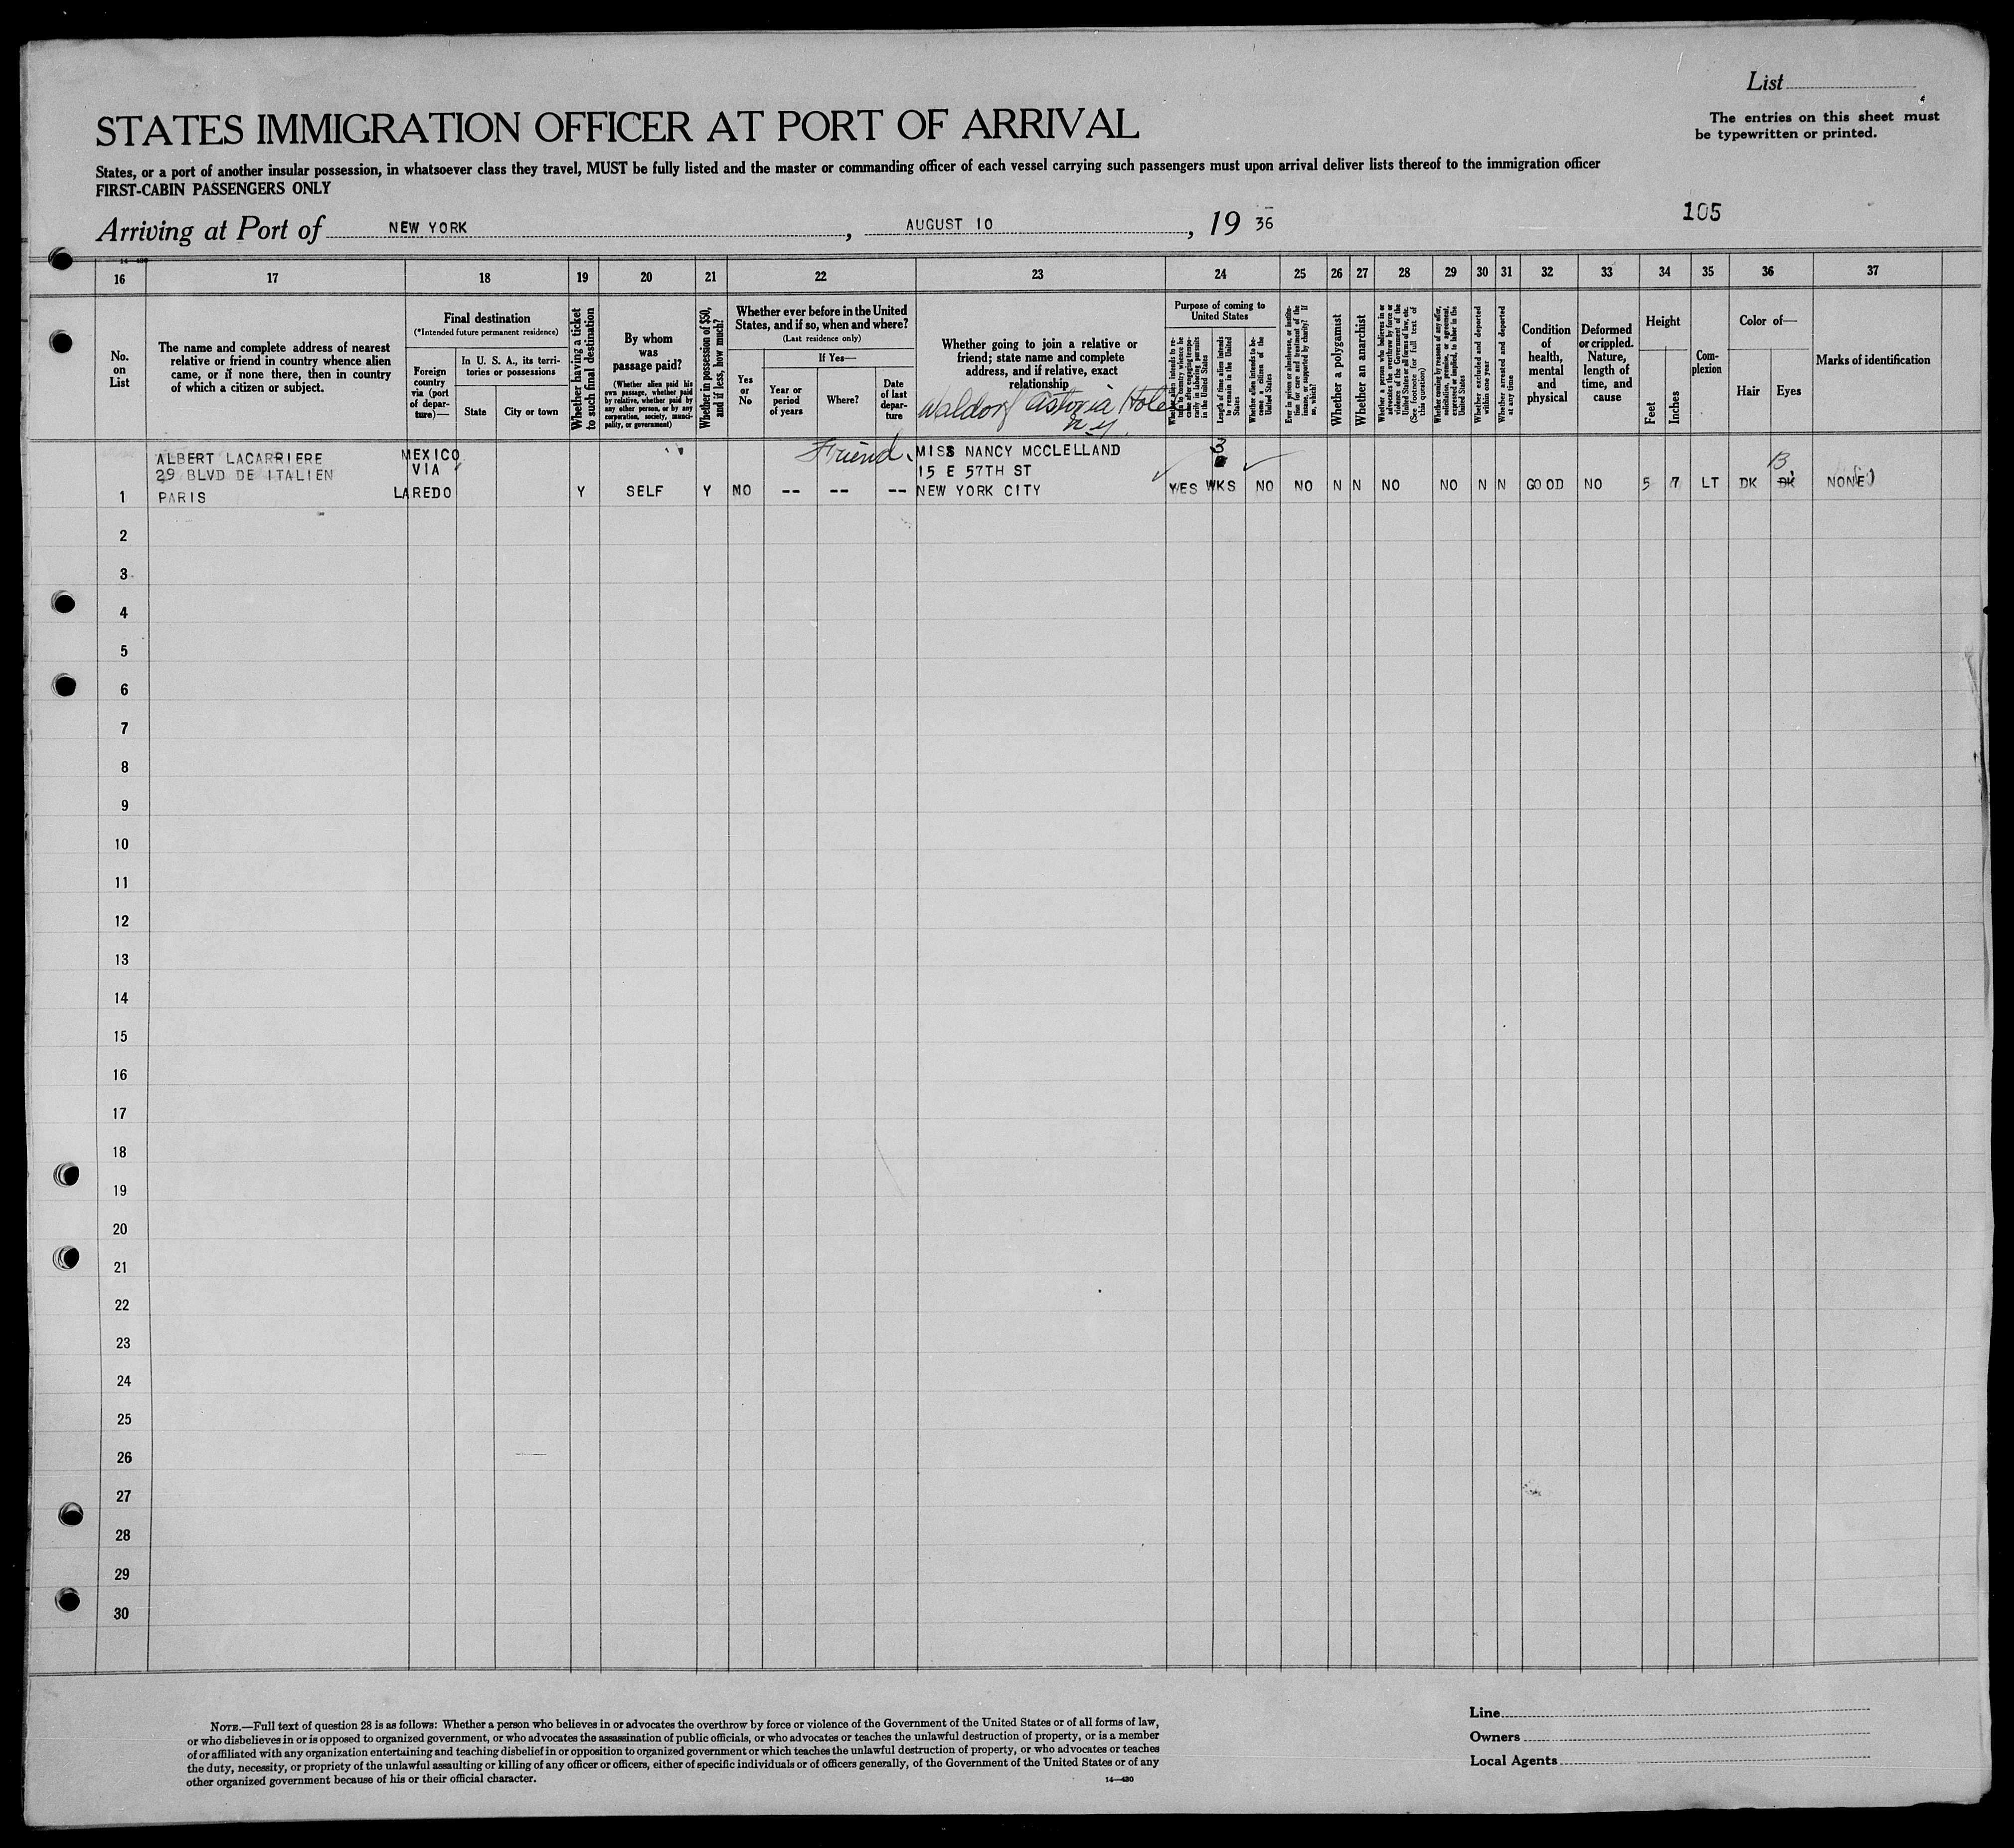 List
The entries on this sheet must
be typewritten or printed.
STATES IMMIGRATION OFFICER AT PORT OF ARRIVAL
States, or a port of another insular possession, in whatsoever class they travel, MUST be fully listed and the master or commanding officer of each vessel carrying such passengers must upon arrival deliver lists thereof to the immigration officer
FIRST-CABIN PASSENGERS ONLY
Arriving at Port of NEW YORK, AUGUST 10, 19 36
105
16 17 18 19 20 21 22 23 24 25 26 27 28 29 30 31 32 33 34 35 36 37
No.
on
List
The name and complete address of nearest
relative or friend in country whence alien
came, or if none there, then in country
of which a citizen or subject.
Final destination
(*Intended future permanent residence)
Foreign
country
via (port
of depar-
ture)—
In U. S. A., its terri-
tories or possessions
State
City or town
Whether having a ticket
to such final destination
By whom
was
passage paid?
(Whether alien paid his
own passage, whether paid
by relative, whether paid by
any other person, or by any
corporation, society, munici-
pality, or government)
Whether in possession of $50,
and if less, how much?
Whether ever before in the United
States, and if so, when and where?
(Last residence only)
Yes
or
No
If Yes—
Year or
period
of years
Where?
Date
of last
depar-
ture
Whether going to join a relative or
friend; state name and complete
address, and if relative, exact
relationship
Waldorf Astoria Hotel
N.Y.
Purpose of coming to
United States
Whether alien intends to re-
turn to country whence he
came after engaging tempo-
rarily in laboring pursuits
in the United States
Length of time alien intends
to remain in the United
States
Whether alien intends to be-
come a citizen of the
United States
Ever in prison or almshouse, or institu-
tion for care and treatment of the
insane, or supported by charity? If
so, which?
Whether a polygamist
Whether an anarchist
Whether a person who believes in or
advocates the overthrow by force or
violence of the Government of the
United States or all forms of law, etc.
(See footnote for full text of
this question)
Whether coming by reasons of any offer,
solicitation, promise, or agreement,
expressed or implied, to labor in the
United States
Whether excluded and deported
within one year
Whether arrested and deported
at any time
Condition
of
health,
mental
and
physical
Deformed
or crippled.
Nature,
length of
time, and
cause
Height
Feet
Inches
Com-
plexion
Color of—
Hair
Eyes
Marks of identification
ALBERT LACARRIERE MEXICO Friend. MISS NANCY MCCLELLAND 3
29 BLVD DE ITALIEN VIA 15 E 57TH ST B
1 PARIS LAREDO Y SELF Y NO -- -- -- NEW YORK CITY YES WKS NO NO N N NO NO N N GOOD NO 5 7 LT DK DK NONE
2
3
4
5
6
7
8
9
10
11
12
13
14
15
16
17
18
19
20
21
22
23
24
25
26
27
28
29
30
NOTE.—Full text of question 28 is as follows: Whether a person who believes in or advocates the overthrow by force or violence of the Government of the United States or of all forms of law,
or who disbelieves in or is opposed to organized government, or who advocates the assassination of public officials, or who advocates or teaches the unlawful destruction of property, or is a member
of or affiliated with any organization entertaining and teaching disbelief in or opposition to organized government or which teaches the unlawful destruction of property, or who advocates or teaches
the duty, necessity, or propriety of the unlawful assaulting or killing of any officer or officers, either of specific individuals or of officers generally, of the Government of the United States or of any
other organized government because of his or their official character.
14—430
Line
Owners
Local Agents